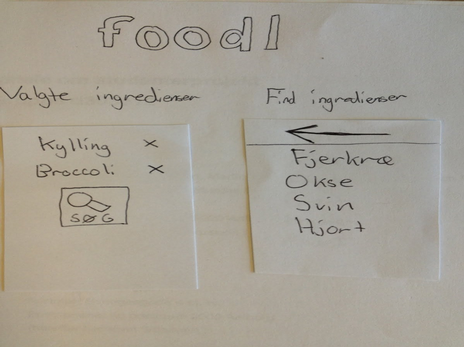 foodl
Valgte ingredienser
Kylling x
Broccoli x
SØG
Find ingredienser
Fjerkræ
Okse
Svin
Hjort